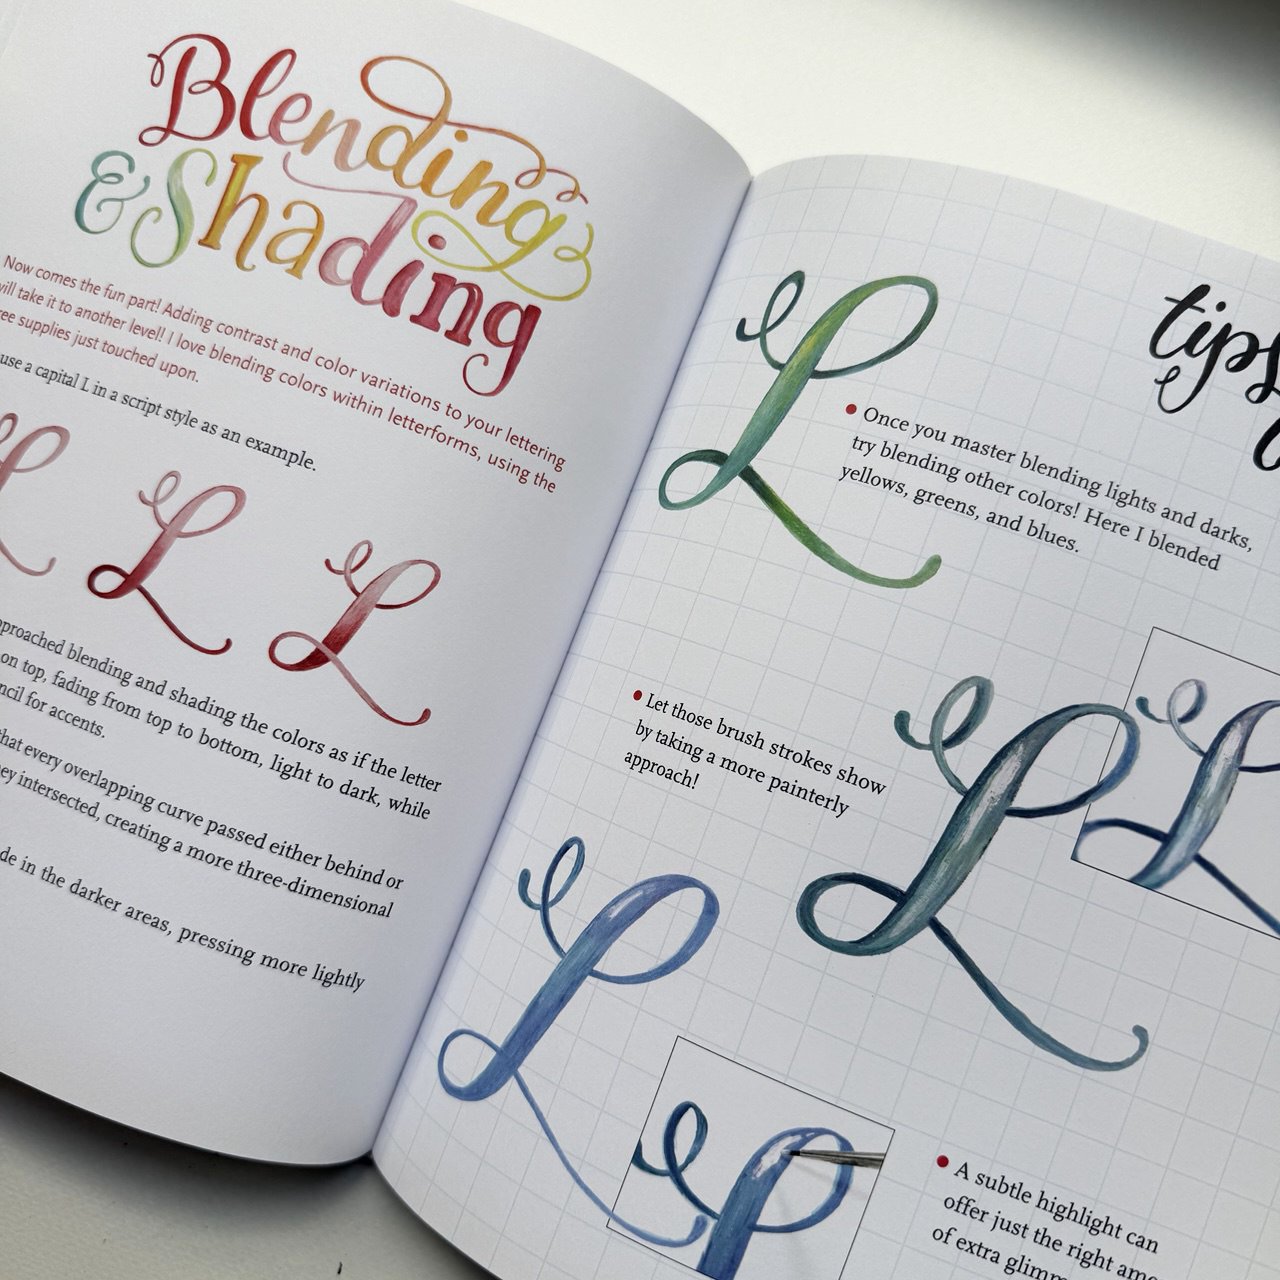 Blending
& Shading
Now comes the fun part! Adding contrast and color variations to your lettering
will take it to another level! I love blending colors within letterforms, using the
supplies just touched upon.
use a capital L in a script style as an example.
L L L
approached blending and shading the colors as if the letter
on top, fading from top to bottom, light to dark, while
for accents.
that every overlapping curve passed either behind or
they intersected, creating a more three-dimensional
in the darker areas, pressing more lightly
tips
L
• Once you master blending lights and darks,
try blending other colors! Here I blended
yellows, greens, and blues.
• Let those brush strokes show
by taking a more painterly
approach!
L
L
• A subtle highlight can
offer just the right
of extra